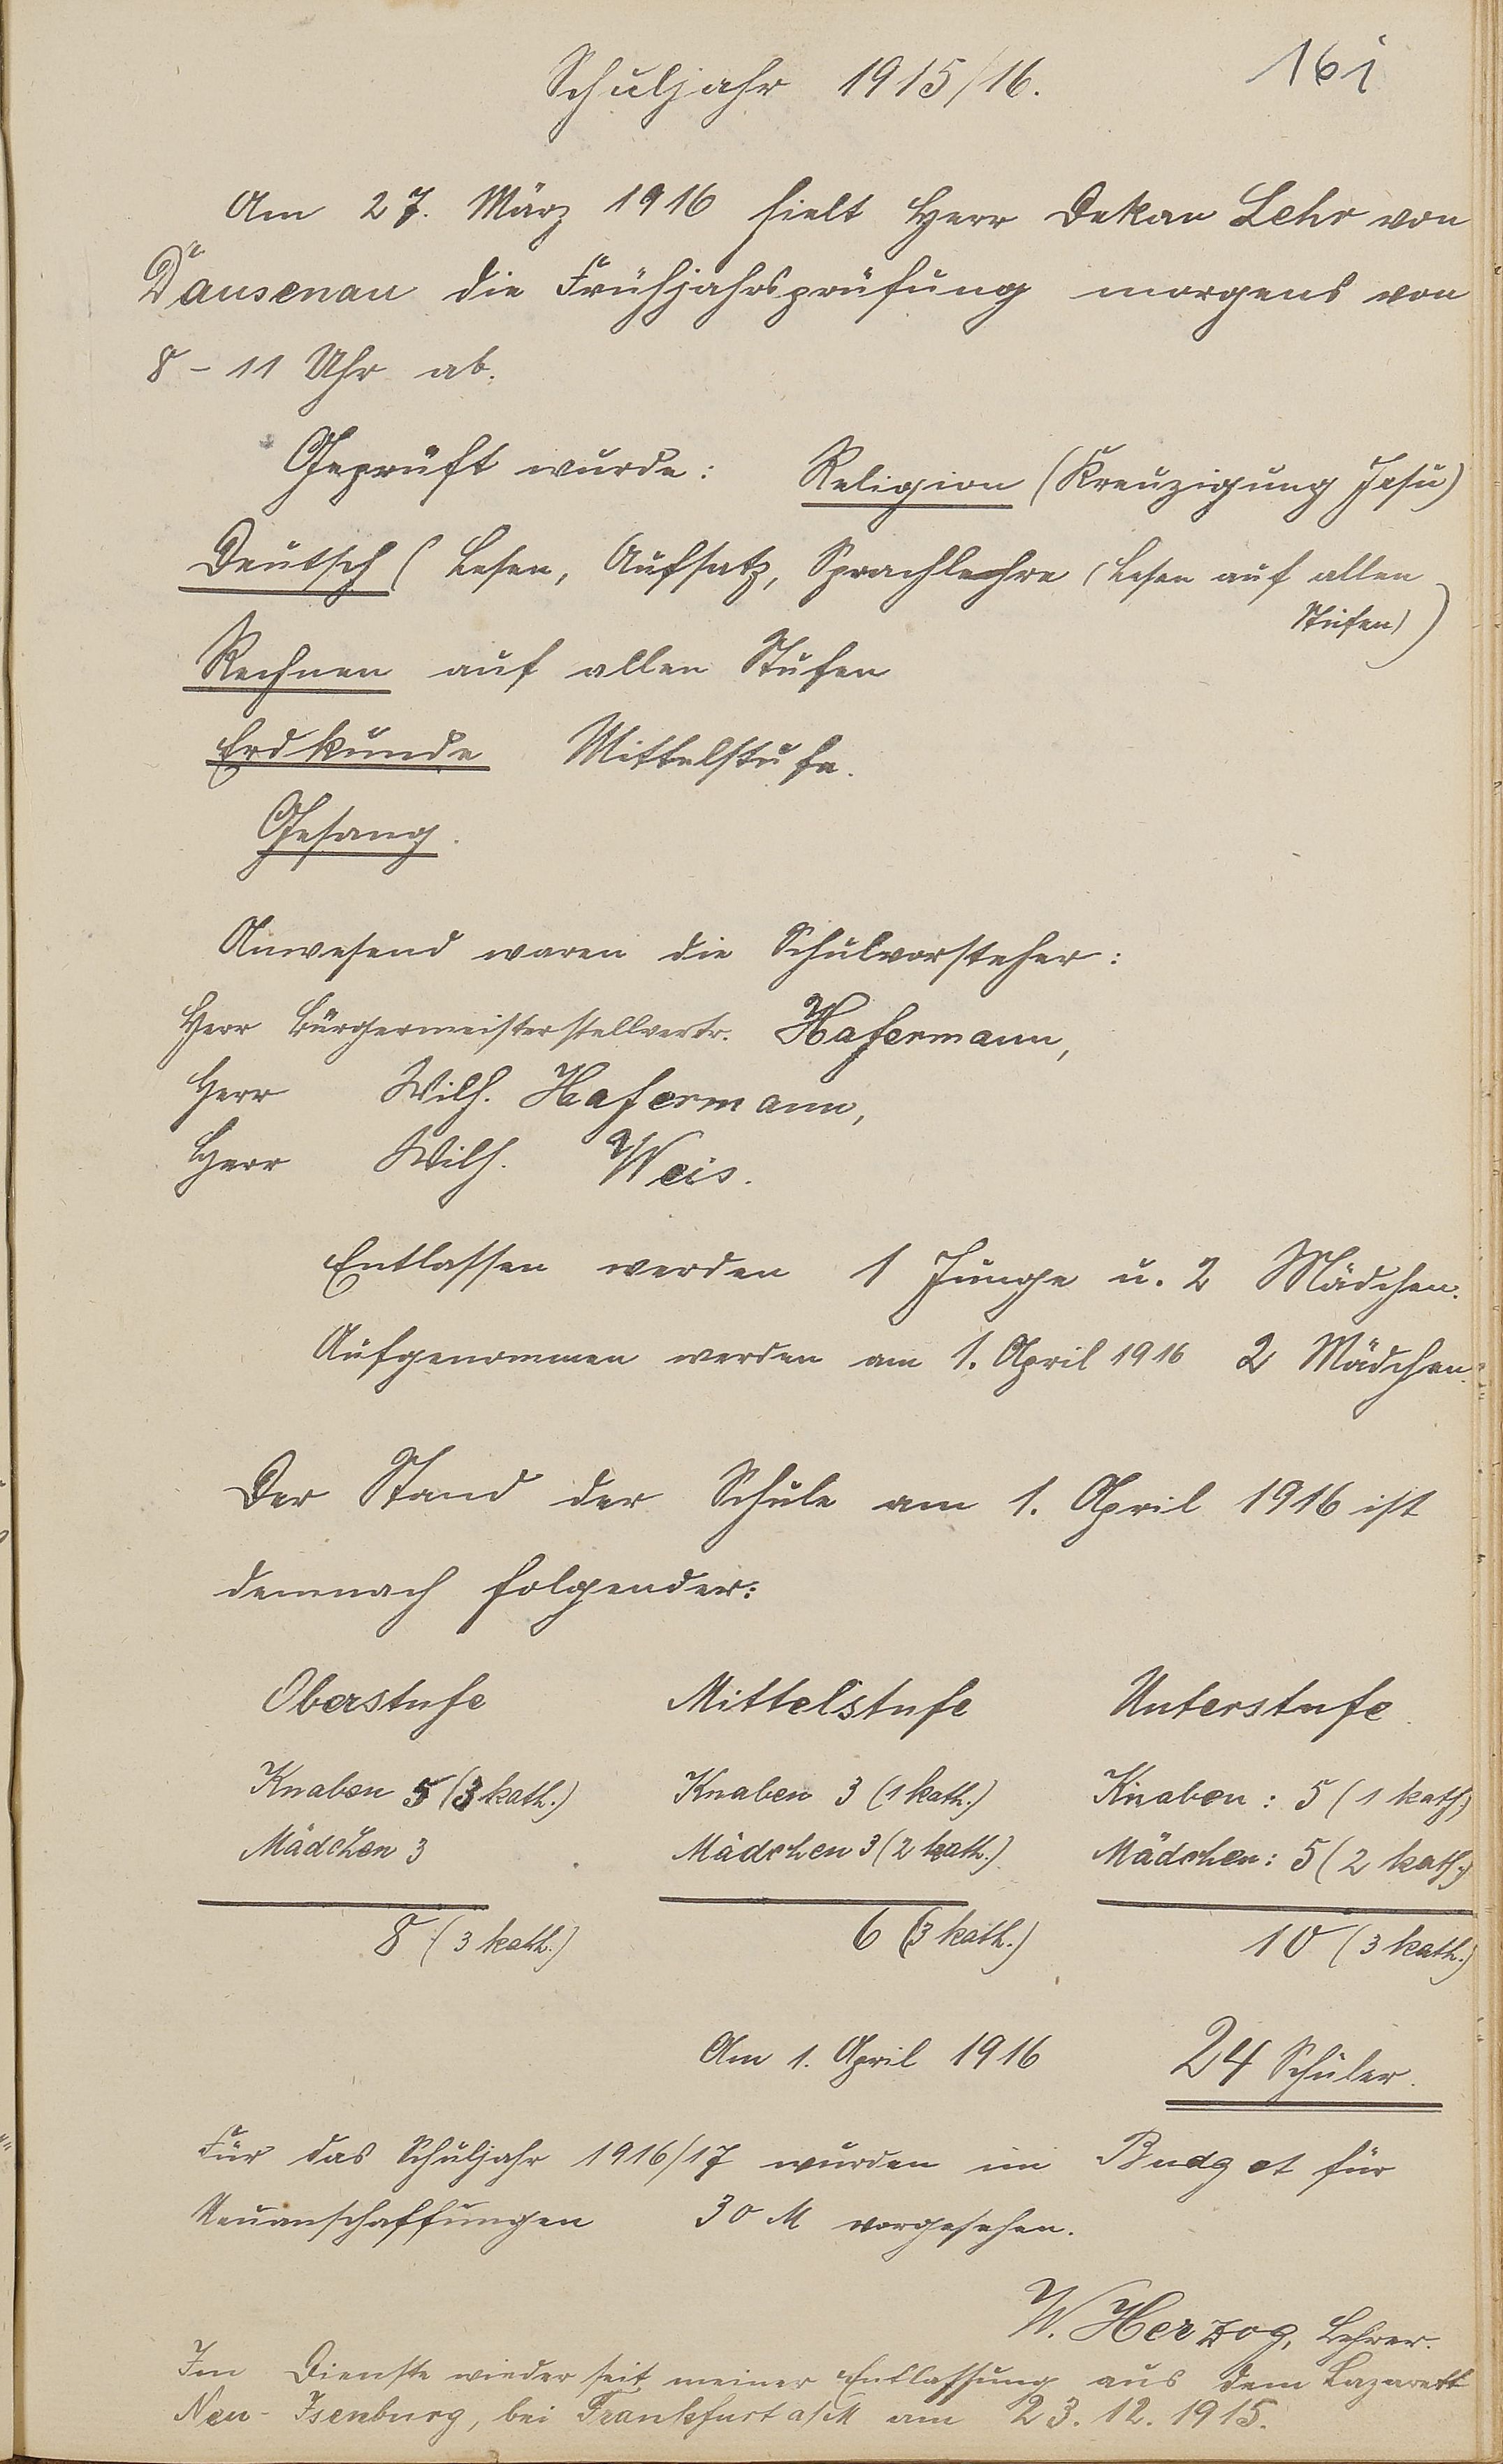 Schuljahr 1915/16.
161
Am 27. März 1916 hielt Herr Dekan Lehr von
Dausenau die Frühjahrsprüfung morgens von
8 - 11 Uhr ab.
Geprüft wurde: Religion (Kreuzigung Jesu)
Deutsch (Lesen, Aufsatz, Sprachlehre (Lesen auf allen
Stufen))
Rechnen auf allen Stufen
Erdkunde Mittelstufe.
Gesang.
Anwesend waren die Schulvorsteher:
Herr Bürgermeisterstellvertr. Hafermann,
Herr Wilh. Hafermann,
Herr Wilh. Weis.
Entlassen werden 1 Junge u. 2 Mädchen.
Aufgenommen werden am 1. April 1916 2 Mädchen.
Der Stand der Schule am 1. April 1916 ist
demnach folgender:
Oberstufe Mittelstufe Unterstufe
Knaben 5 (3 kath.) Knaben 3 (1 kath.) Knaben: 5 (1 kath.)
Mädchen 3 Mädchen 3 (2 kath.) Mädchen: 5 (2 kath.)
8 (3 kath.) 6 (3 kath.) 10 (3 kath.)
Am 1. April 1916 24 Schüler.
Für das Schuljahr 1916/17 wurden im Budget für
Neuanschaffungen 30 M vorgesehen.
W. Herzog, Lehrer.
Im Dienste wieder seit meiner Entlassung aus dem Lazarett
Neu-Isenburg, bei Frankfurt a/M am 23.12.1915.